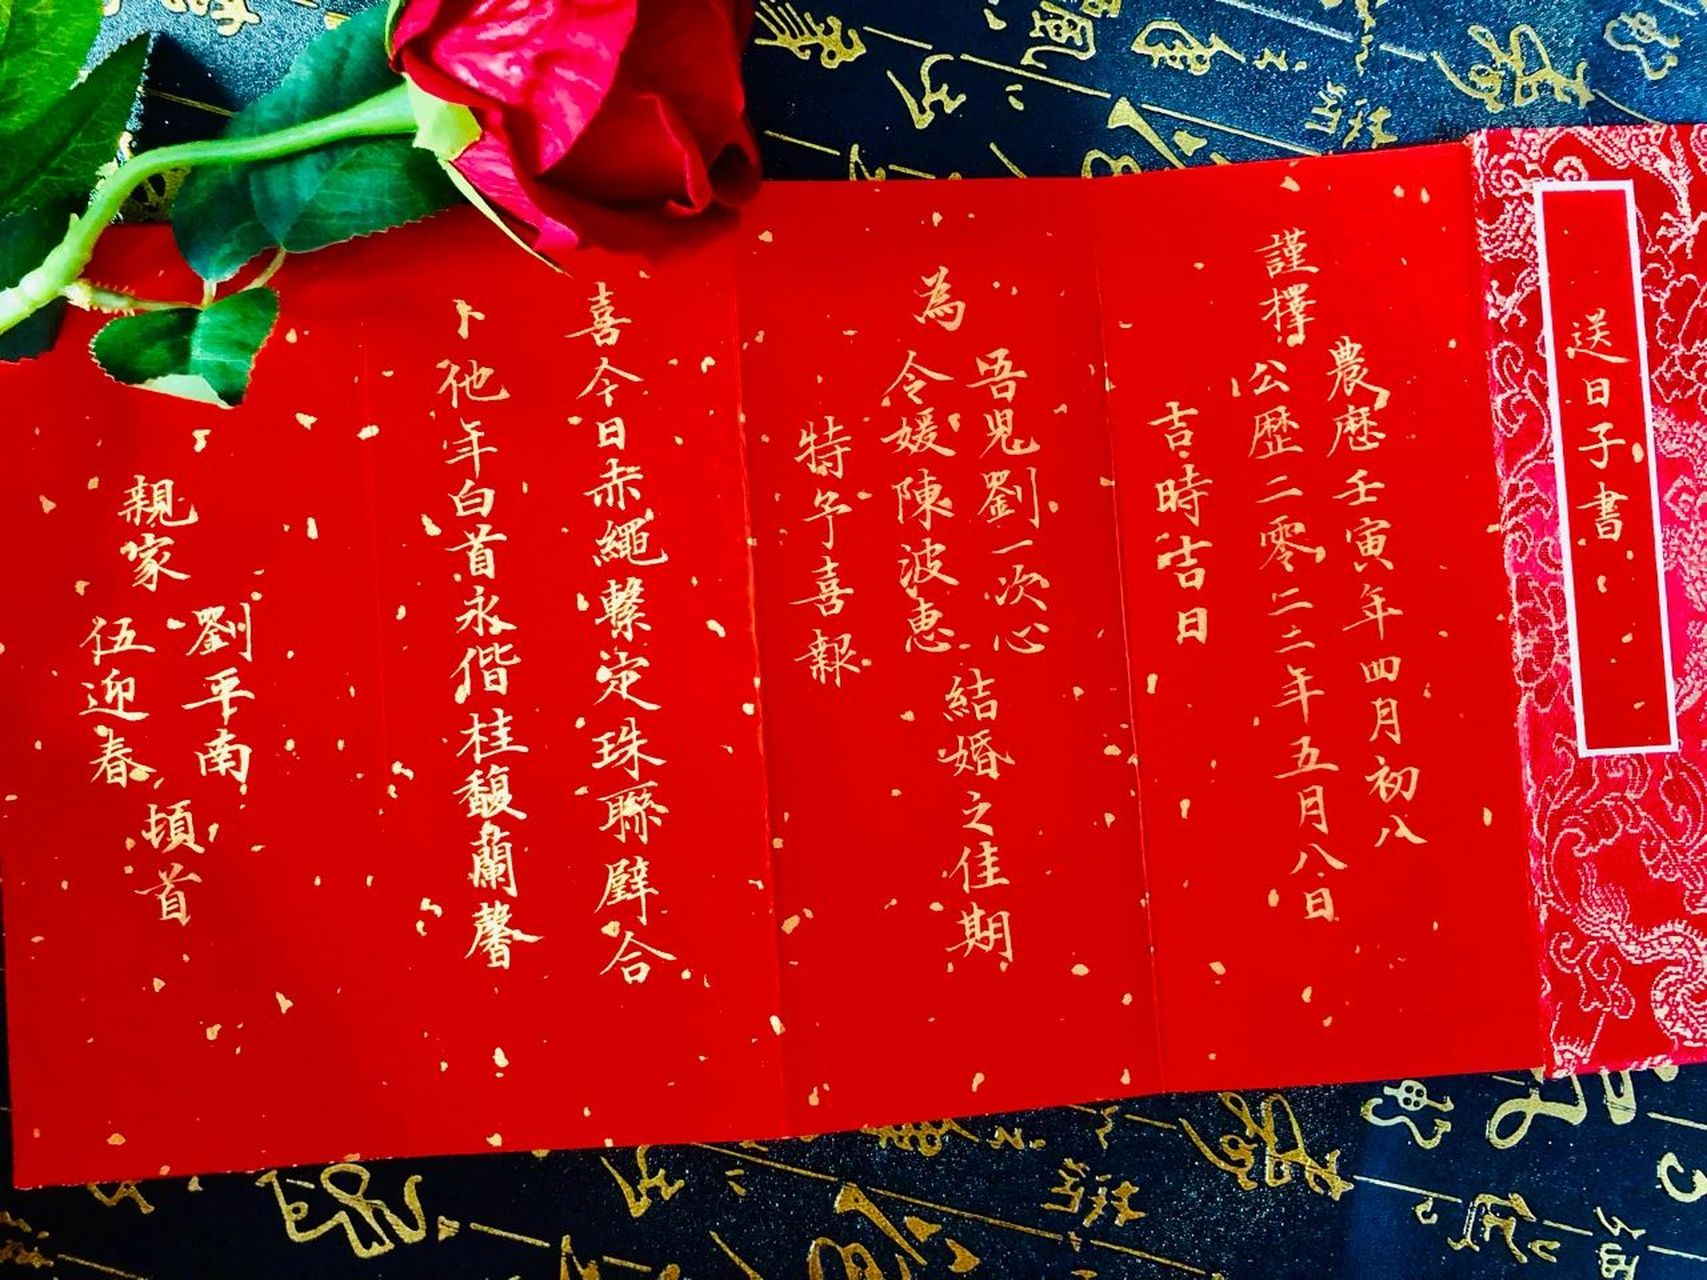 送日子書
謹擇
農曆壬寅年四月初八
公歷二零二二年五月八日
吉時吉日
為
吾兒劉一次心
令媛陳波惠
結婚之佳期
特予喜報
喜今日赤繩繫定珠聯璧合
卜他年白首永偕桂馥蘭馨
親家
劉平南
伍迎春
頓首